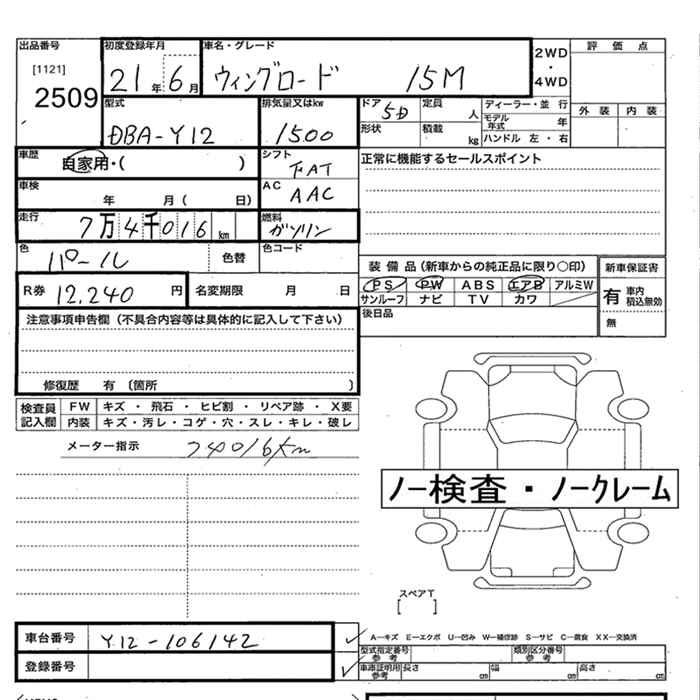 出品番号 初度登録年月 車名・グレード 評価点
[1121] 21年6月 ウィングロード 15M 2WD・4WD
2509 外装 内装
型式 排気量又はkw ドア 5D 定員 人 ディーラー・並行
DBA-Y12 1500 形状 積載 kg モデル年式 年
ハンドル 左・右
車歴 自家用・( ) シフト FAT 正常に機能するセールスポイント
車検 年 月( 日) AC AAC
走行 7万4千016km 燃料 ガソリン
色 パール 色替 色コード
装備品(新車からの純正品に限り〇印) 新車保証書
R券 12,240円 名変期限 月 日 PS PW ABS エアB アルミW 有 車内積込無効
サンルーフ ナビ TV カワ 無
注意事項申告欄(不具合内容等は具体的に記入して下さい) 後日品
修復歴 有(箇所 )
検査員記入欄 FW キズ・飛石・ヒビ割・リペア跡・X要
内装 キズ・汚レ・コゲ・穴・スレ・キレ・破レ
メーター指示 74016km
ノー検査・ノークレーム
スペアT
[ ]
車台番号 Y12-106142 A―キズ E―エクボ U―凹み W―補修跡 S―サビ C―腐食 XX―交換済
型式指定番号 参考 類別区分番号 参考
登録番号 車庫証明用 参考 長さ cm 幅 cm 高さ cm